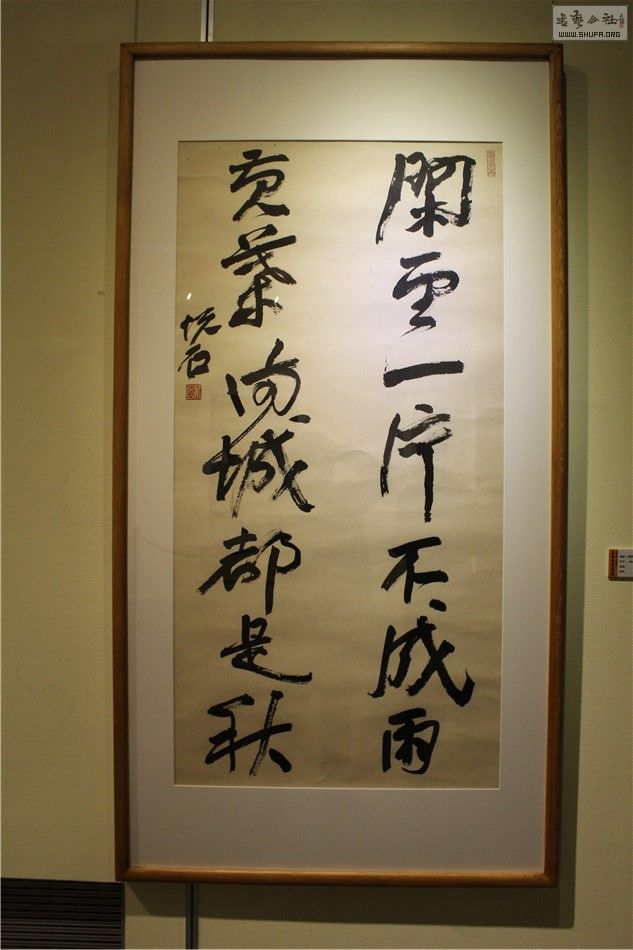 閑雲一片不成雨
黄葉滿城都是秋
悦石
書藝公社
WWW.SHUFA.ORG